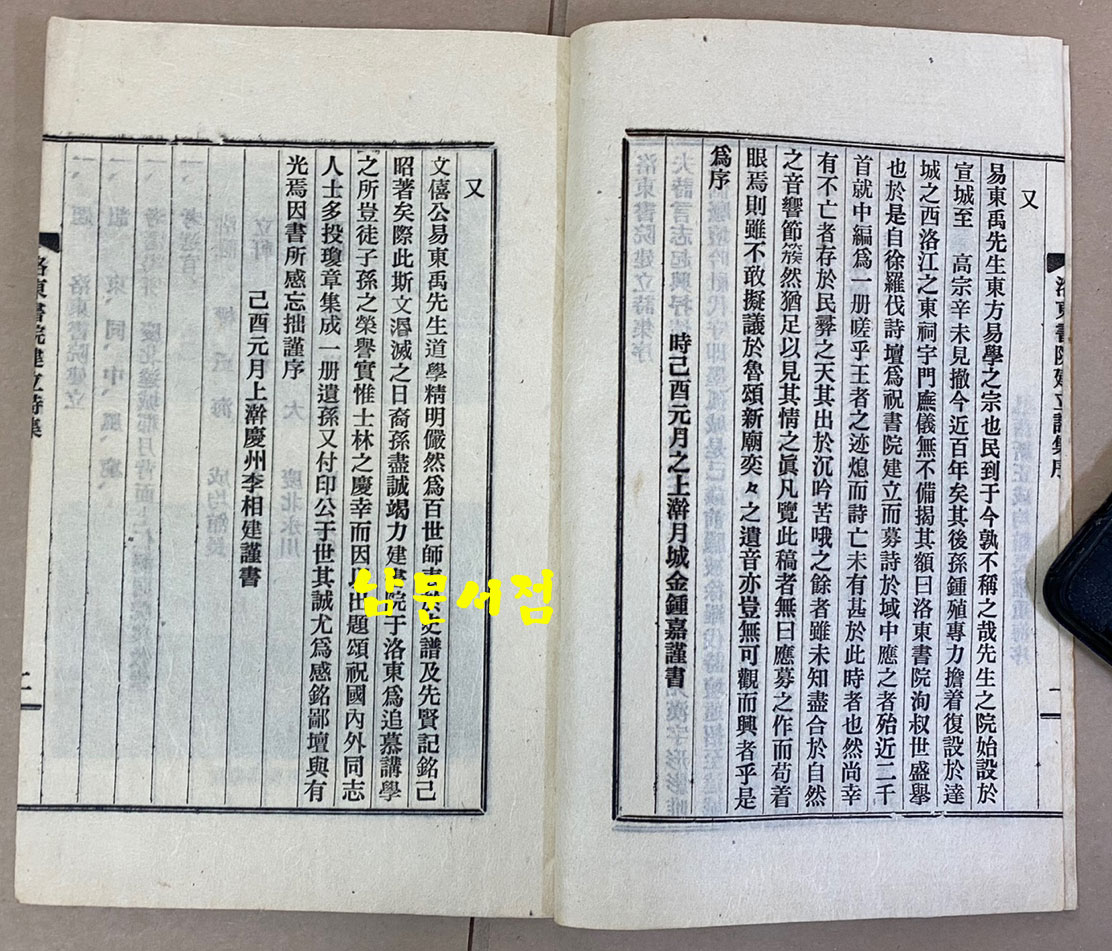 洛東書院建立詩集序
又
易東禹先生東方易學之宗也民到于今孰不稱之哉先生之院始設於
宣城至 高宗辛未見撤今近百年矣其後孫鍾殖專力擔着復設於達
城之西洛江之東祠宇門廡儀無不備揭其額曰洛東書院洵叔世盛擧
也於是自徐羅伐詩壇爲祝書院建立而募詩於域中應之者殆近二千
首就中編爲一册嗟乎王者之迹熄而詩亡未有甚於此時者也然尚幸
有不亡者存於民彛之天其出於沉吟苦哦之餘者雖未知盡合於自然
之音響節簇然猶足以見其情之眞凡覽此稿者無曰應募之作而苟着
眼焉則雖不敢擬議於魯頌新廟奕々之遺音亦豈無可觀而興者乎是
爲序
時己酉元月之上澣月城金鍾嘉謹書
又
文僖公易東禹先生道學精明儼然爲百世師 史譜及先賢記銘己
昭著矣際此斯文濅滅之日裔孫盡誠竭力建書院于洛東爲追慕講學
之所豈徒子孫之榮譽實惟士林之慶幸而因 出題頌祝國內外同志
人士多投瓊章集成一册遺孫又付印公于世其誠尤爲感銘鄙壇與有
光焉因書所感忘拙謹序
己酉元月上澣慶州李相建謹書
洛東書院建立詩集
二
남문서점